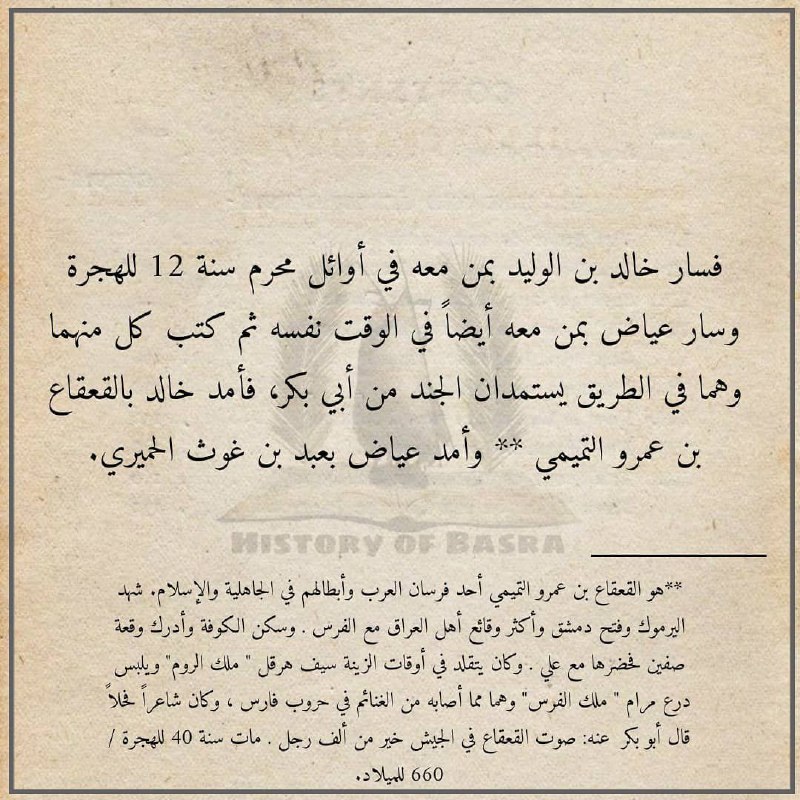 فسار خالد بن الوليد بمن معه في أوائل محرم سنة 12 للهجرة
وسار عياض بمن معه أيضاً في الوقت نفسه ثم كتب كل منهما
وهما في الطريق يستمدان الجند من أبي بكر، فأمد خالد بالقعقاع
بن عمرو التميمي ** وأمد عياض بعبد بن غوث الحميري.
HISTORY OF BASRA
**هو القعقاع بن عمرو التميمي أحد فرسان العرب وأبطالهم في الجاهلية والإسلام. شهد
اليرموك وفتح دمشق وأكثر وقائع أهل العراق مع الفرس . وسكن الكوفة وأدرك وقعة
صفين فحضرها مع علي . وكان يتقلد في أوقات الزينة سيف هرقل " ملك الروم" ويلبس
درع مرام " ملك الفرس" وهما مما أصابه من الغنائم في حروب فارس ، وكان شاعراً فحلاً
قال أبو بكر عنه: صوت القعقاع في الجيش خير من ألف رجل . مات سنة 40 للهجرة /
660 للميلاد.